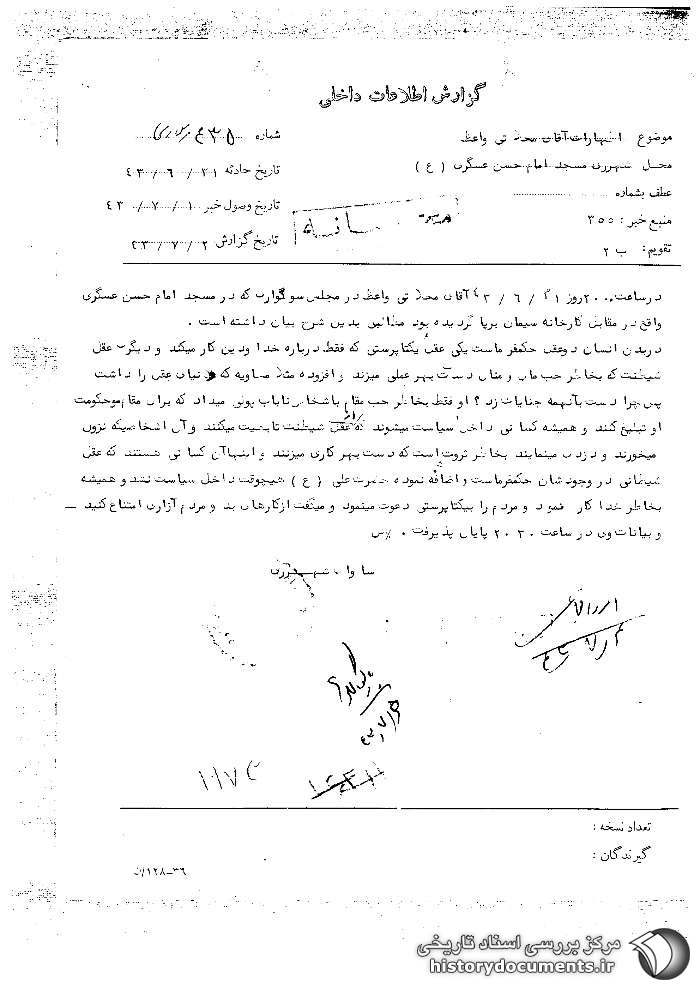 گزارش اطلاعات داخلی
موضوع اظهارات آقای محلاتی واعظ
شماره ۶۳۵
محل شهرری مسجد امام حسن عسگری ( ع )
تاریخ حادثه ۴۳/۶/۲۱
عطف بشماره
تاریخ وصول خبر ۴۳/۷/۱
منبع خبر : ۳۵۵
تاریخ گزارش ۴۳/۷/۲
تقویم : ب ۲
در ساعت ۲۰۰۰ روز ۲۱/۶/۴۳ آقای محلاتی واعظ در مجلس سوگواری که در مسجد امام حسن عسگری
واقع در مقابل کارخانه سیمان برپا گردیده بود مطالبی بدین شرح بیان داشته است .
در بدن انسان دو عقل حکمفرماست یکی عقل یکتاپرستی که فقط درباره خدا و دین کار میکند و دیگری عقل
شیطنت که بخاطر حب مال و منال دست بهر عملی میزند و افزوده مثلا معاویه که دنیای عقل را داشت
پس چرا دست بآنهمه جنایات زد ؟ او فقط بخاطر حب مقام باشخاص ناباب پول میداد که برای مقام و حکومت
او تبلیغ کنند و همیشه کسانی داخل سیاست میشوند که از عقل شیطنت تابعیت میکنند و آن اشخاصیکه نزول
میخورند و دزدی مینمایند بخاطر ثروت است که دست بهر کاری میزنند و اینها آن کسانی هستند که عقل
شیطانی در وجودشان حکمفرماست و اضافه نموده حضرت علی ( ع ) هیچوقت داخل سیاست نشد و همیشه
بخاطر خدا کار نمود و مردم را بیکتاپرستی دعوت مینمود و میگفت از کارهای بد و مردم آزاری امتناع کنید –
و بیانات وی در ساعت ۲۰۳۰ پایان پذیرفت .
ساواک شهرری
تعداد نسخه :
گیرندگان :
۱۲۸-۳۶
مرکز بررسی اسناد تاریخی
historydocuments.ir